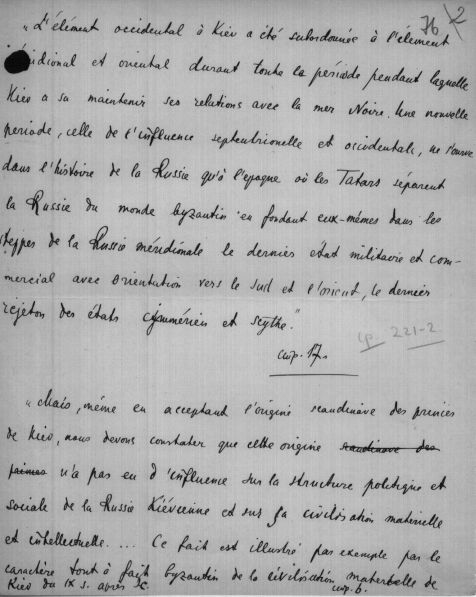 76 2
"L'élément occidental à Kiev a été subordonnée à l'élément
méridional et oriental durant toute la période pendant laquelle
Kiev a su maintenir ses relations avec la mer Noire. Une nouvelle
période, celle de l'influence septentrionelle et occidentale, ne s'ouvre
dans l'histoire de la Russie qu'à l'epoque où les Tatars séparent
la Russie du monde byzantin en fondant eux-mêmes dans les
steppes de la Russie méridionale le dernier état militaire et com-
mercial avec orientation vers le sud et l'orient, le dernier
rejeton des états cymmérien et scythe."
стр. 17.
ср 221-2
"Mais, même en acceptant l'origine scandinave des princes
de Kiev, nous devons constater que cette origine scandinave des
princes n'a pas eu d'influence sur la structure politique et
sociale de la Russie Kiévienne et sur sa civilisation materielle
et intellectuelle.... Ce fait est illustré par exemple par le
caractère tout à fait byzantin de la civilisation materielle de
Kiev du IX s. après J.C. стр. 6.